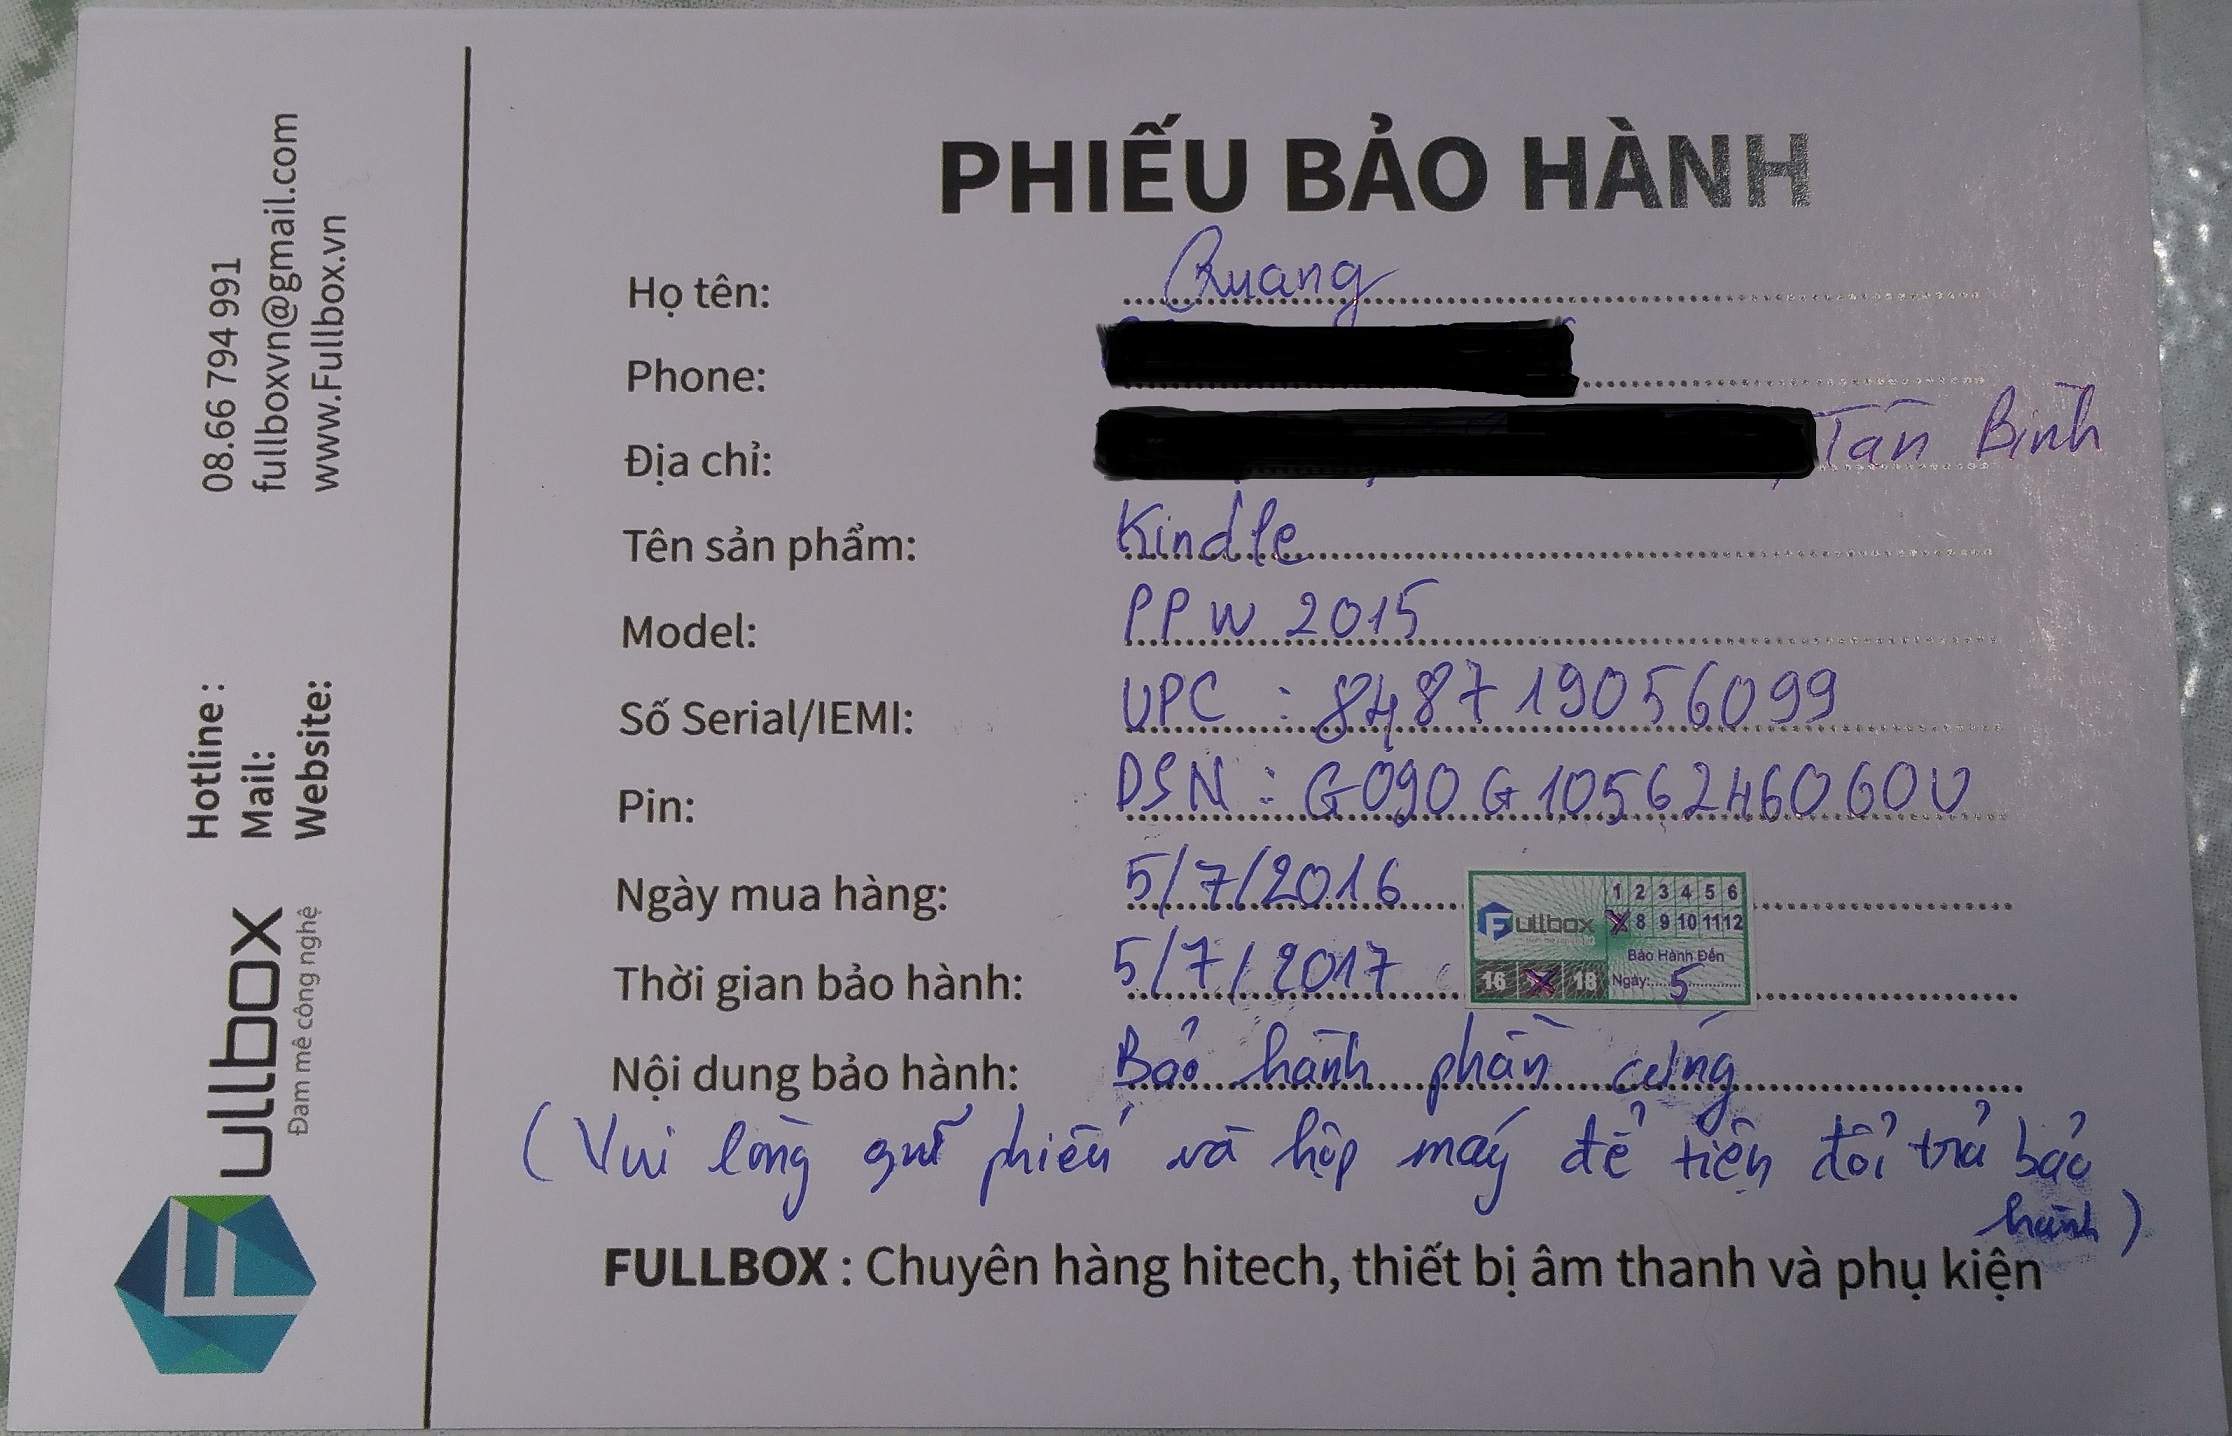 PHIẾU BẢO HÀNH
Họ tên: Quang
Phone:
Địa chỉ: Tân Bình
Tên sản phẩm: Kindle
Model: PPW 2015
Số Serial/IEMI: UPC : 848719056099
Pin: DSN : G090G1056246060U
Ngày mua hàng: 5/7/2016
Thời gian bảo hành: 5/7/2017
Nội dung bảo hành: Bảo hành phần cứng
(Vui lòng giữ phiếu và hộp máy để tiện đổi trả bảo
hành)
FULLBOX : Chuyên hàng hitech, thiết bị âm thanh và phụ kiện
Fullbox
1 2 3 4 5 6
8 9 10 11 12
Bảo Hành Đến
16 18 Ngày: 5
Fullbox
Đam mê công nghệ
Hotline : 08.66 794 991
Mail: fullboxvn@gmail.com
Website: www.Fullbox.vn